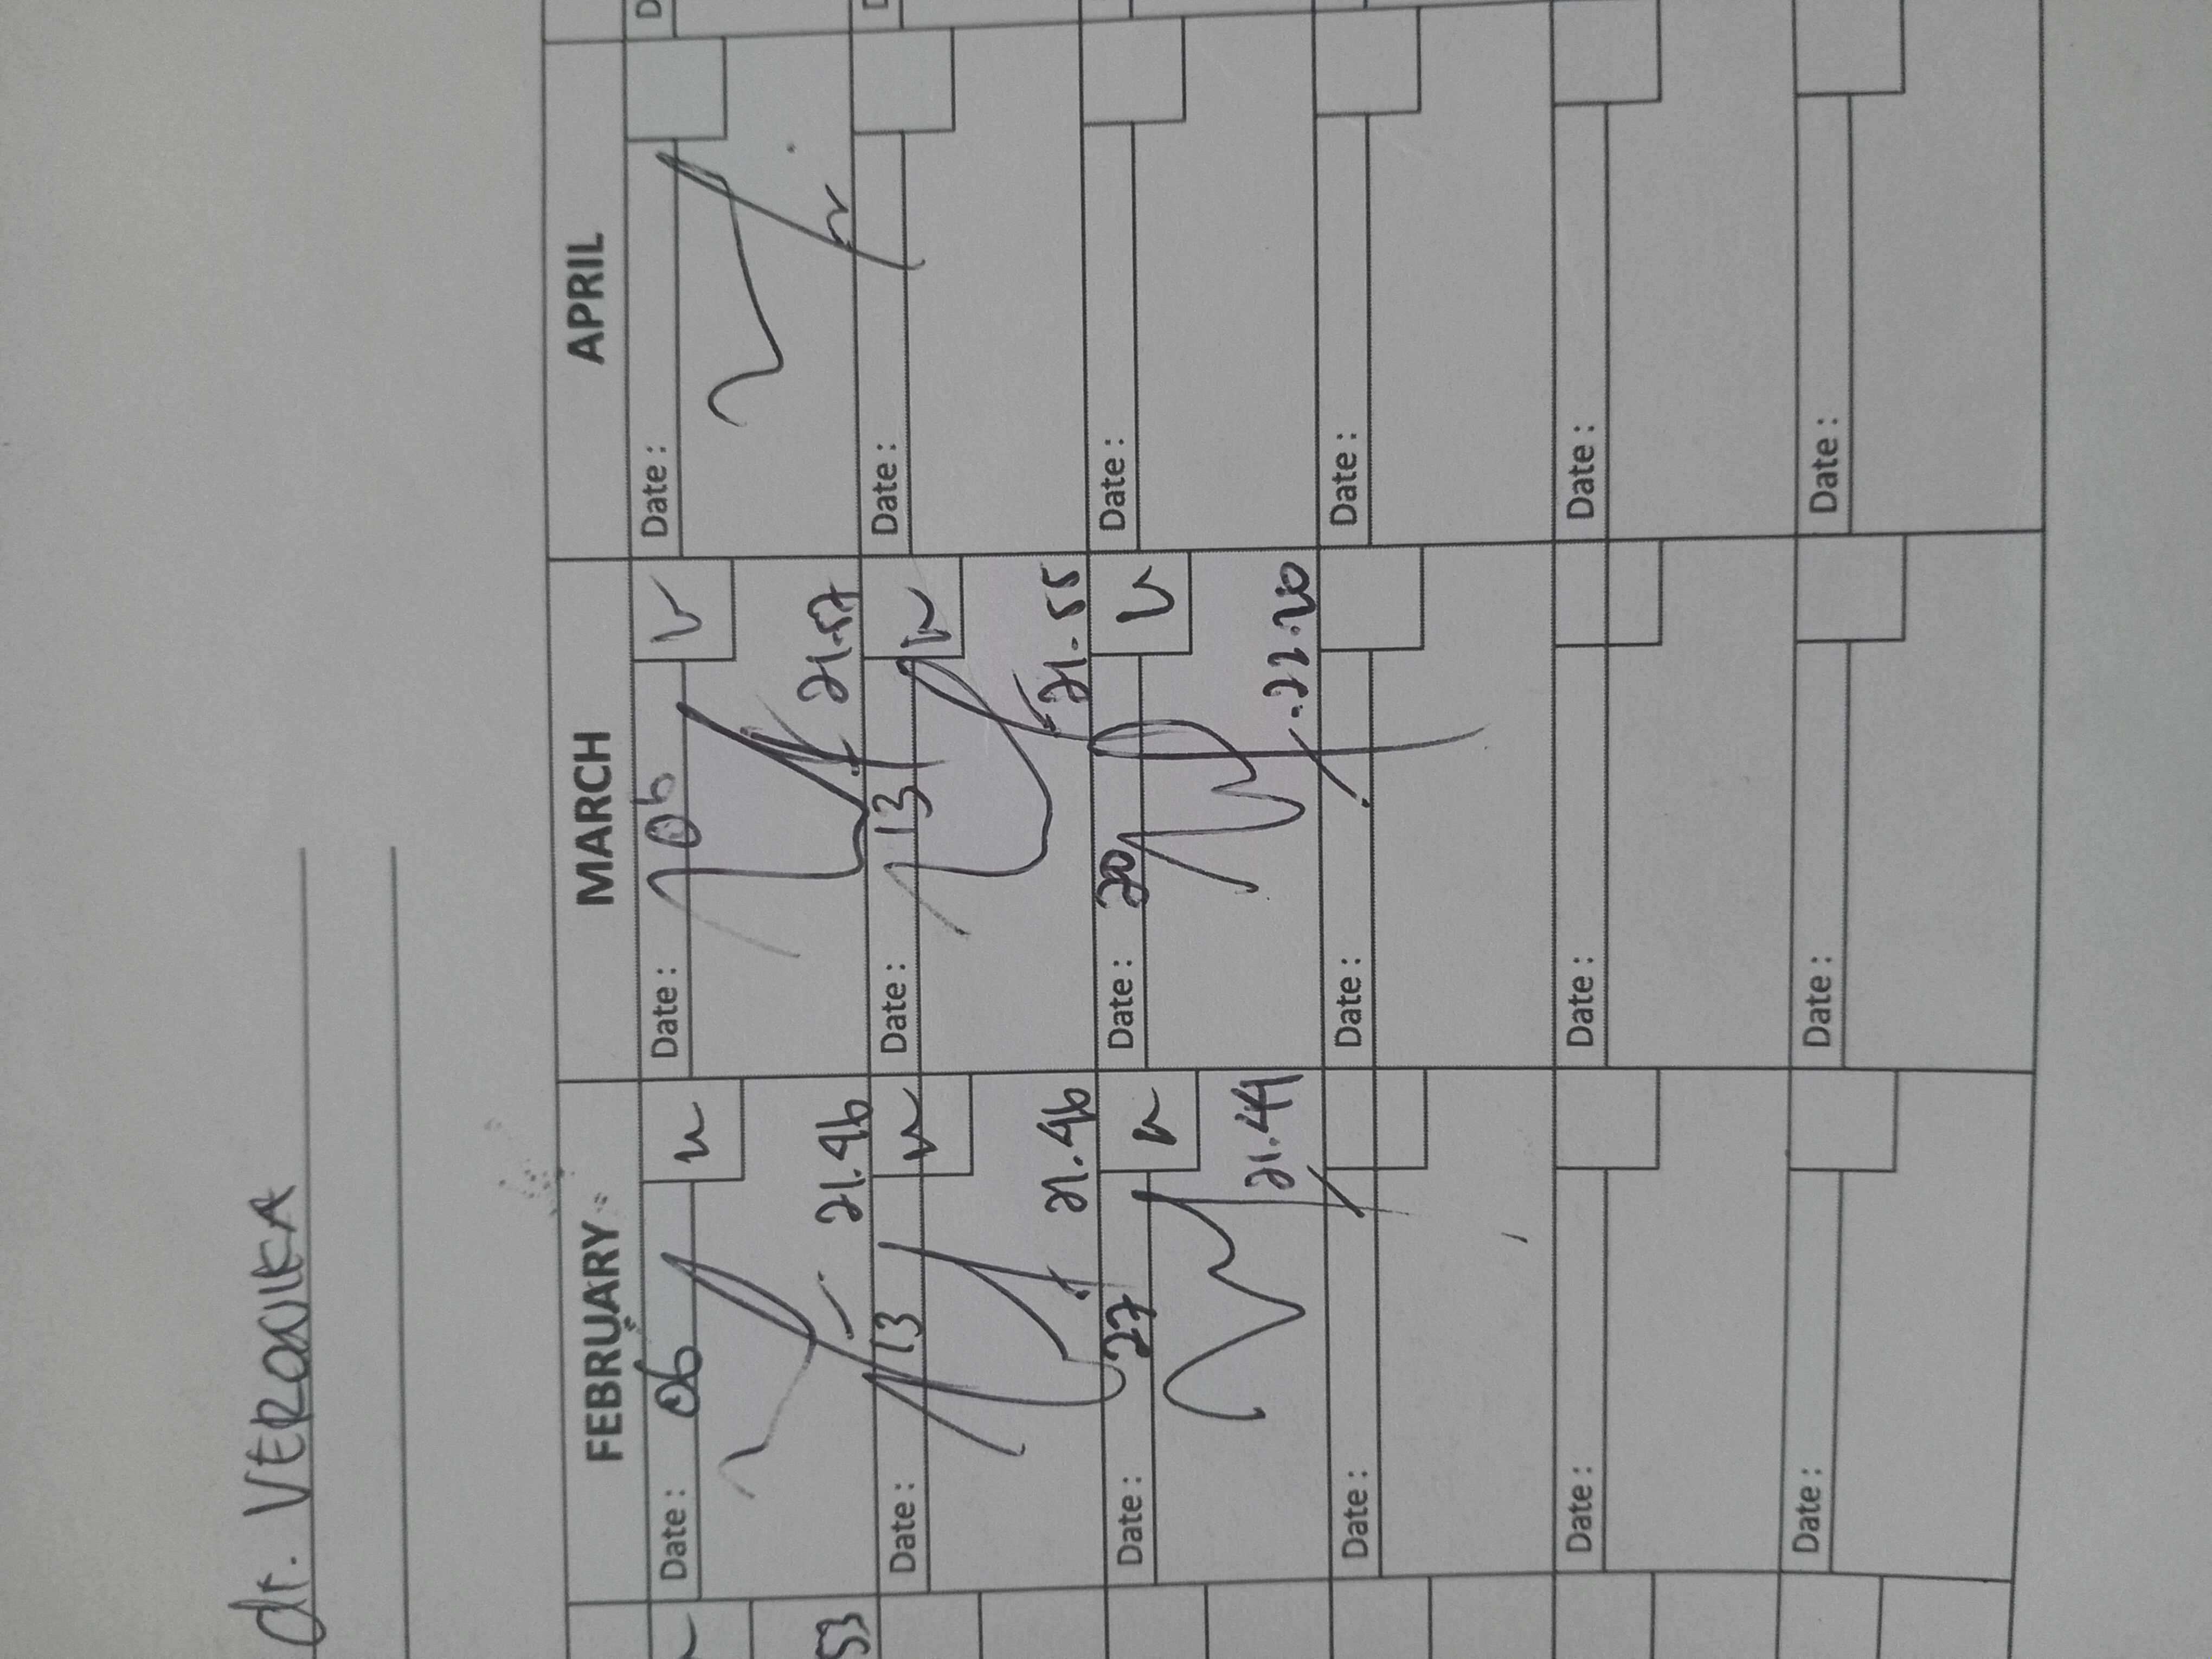 dr. VERONIKA
FEBRUARY MARCH APRIL
Date : 06 Date : 06 Date :
53 21.46 21.57
Date : 13 Date : 13 Date :
21.46 21.55
Date : 27 Date : 20 Date :
21.44 22.20
Date : Date : Date :
Date : Date : Date :
Date : Date : Date :